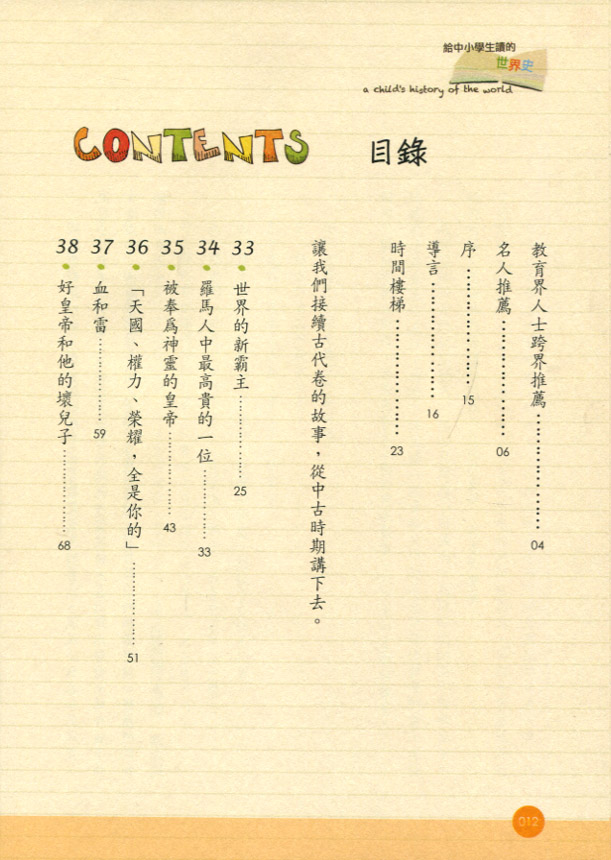 給中小學生讀的
世界史
a child's history of the world
CONTENTS 目錄
教育界人士跨界推薦 04
名人推薦 06
序 15
導言 16
時間樓梯 23
讓我們接續古代卷的故事，從中古時期講下去。
33 世界的新霸主 25
34 羅馬人中最高貴的一位 33
35 被奉爲神靈的皇帝 43
36 「天國、權力、榮耀，全是你的」 51
37 血和雷 59
38 好皇帝和他的壞兒子 68
012